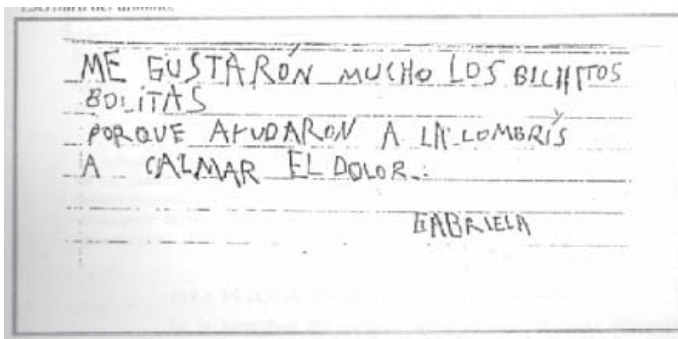 ME GUSTARÓN MUCHO LOS BICHITOS
BOLITAS
PORQUE AYUDARON A LA LOMBRÍS
A CALMAR EL DOLOR.
GABRIELA